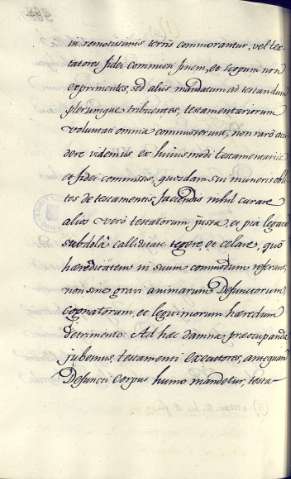 in remotissimis terris commorantur, vel tes-
tatores fidei commissi finem, et legum non
exprimentes, sed alius mandatum ad testandum
plerumque tribuentes, testamentariorum
voluntati omnia commiserunt, non raro evi
dere videmus ex huiusmodi testamentariis
et fidei commissis, quosdam sui muneris obli
tes de testamentis, faciendis nihil curare
alios verò testatorum jussa, et pia legata
subdola calliditate tegere, et celare, quò
hæreditatem in suum commodum referant,
non sine gravi animarum Defunctorum
cognatorum, et legitimorum hæredum
detrimento. Ad hæc damna præocupanda
jubemus, testamenti executores, antequam
Defuncti corpus humo mandetur, testa-